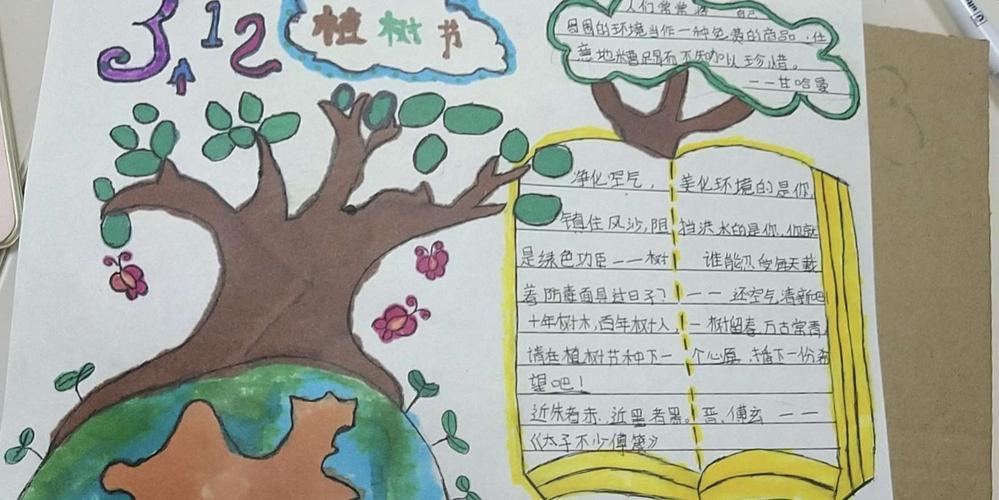 3.12
植树节
人们常常将 自己
周围的环境当作一种免费的商品,任
意地糟蹋而不知加以珍惜。
——甘哈曼
净化空气, 美化环境的是你,
镇住风沙,阻挡洪水的是你,你就
是绿色功臣——树 谁能忍受每天戴
着防毒面具过日子?——还空气清新吧
十年树木,百年树人,一树留春,万古常青
请在植树节种下一个心愿,播下一份希
望吧!
近朱者赤,近墨者黑。晋,傅玄——
《太子少傅箴》